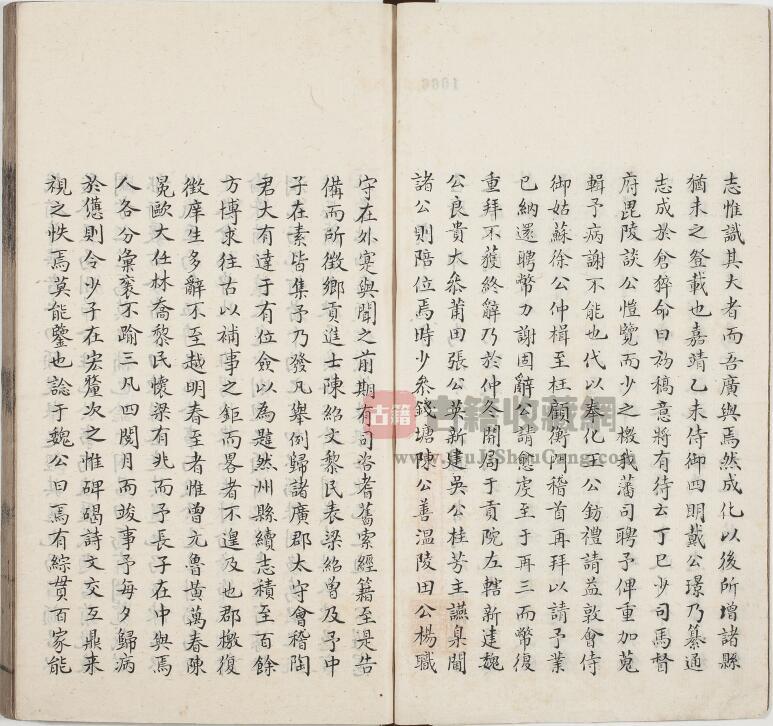 志惟識其大者而吾廣與焉然成化以後所增諸縣
猶未之登載也嘉靖乙未侍御四明戴公璟乃纂通
志成於倉猝命曰初稿意將有待云丁巳少司馬督
府毘陵談公愷覽而少之檄我藩司聘予俾重加蒐
輯予病謝不能也代以奉化王公鈁禮請益敦會侍
御姑蘇徐公仲楫至枉顧衡門稽首再拜以請予業
已納還聘幣力謝固辭公請愈虔至于再三而幣復
重拜不獲終辭乃於仲冬開局于貢院左轄新建魏
公良貴大叅莆田張公英新建吳公桂芳主讌臬閫
諸公則陪位焉時少叅錢塘陳公善溫陵田公楊職
守在外寔與聞之前期有司咨耆舊索經籍至是告
備而所徵鄉貢進士陳紹文黎民表梁紹曾及予中
子在素皆集予乃發凡舉例歸諸廣郡太守會稽陶
君大有達于有位僉以為韙然州縣續志積至百餘
方博求往古以補事之鉅而畧者不遑及也郡檄復
徵庠生多辭不至越明春至者惟曾元魯黃萬春陳
冕歐大任林喬黎民懷梁有兆而予長子在中與焉
人各分彙裒不踰三凡四閱月而竣事予每夕歸病
於憊則令少子在宏釐次之惟碑碣詩文交互鼎来
視之怢焉莫能鑒也諗于魏公曰焉有綜貫百家能
1066
古籍
古籍收藏網
www.GuJiShouCang.com